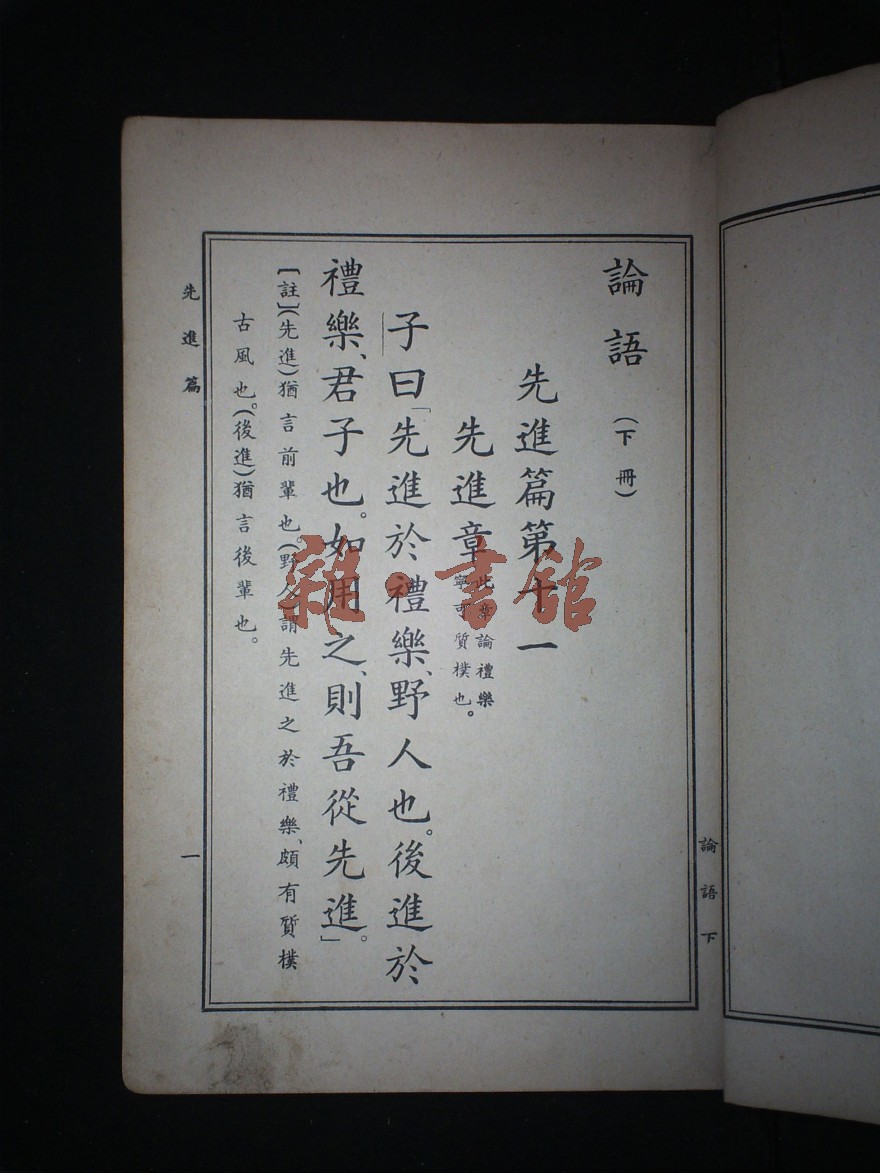 論語（下冊）
先進篇第十一
先進章
此章論禮樂
寧可質樸也。
子曰「先進於禮樂、野人也。後進於
禮樂、君子也。如用之、則吾從先進」。
【註】（先進）猶言前輩也。（野人）謂先進之於禮樂、頗有質樸
古風也。（後進）猶言後輩也。
先進篇
一
論語下
雜·書館